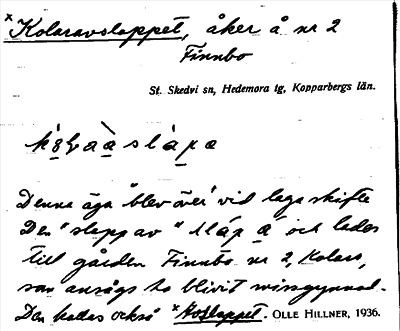 ×Kolaravslappet, åker å nr 2
Finnbo
St. Skedvi sn, Hedemora tg, Kopparbergs län.
Denna äga "blev över" vid laga skifte
Den "slapp av" och lades
till gården Finnbo nr 2, Kolars,
som ansågs ha blivit missgynnad.
Den kallas också ×Avslappet. OLLE HILLNER, 1936.